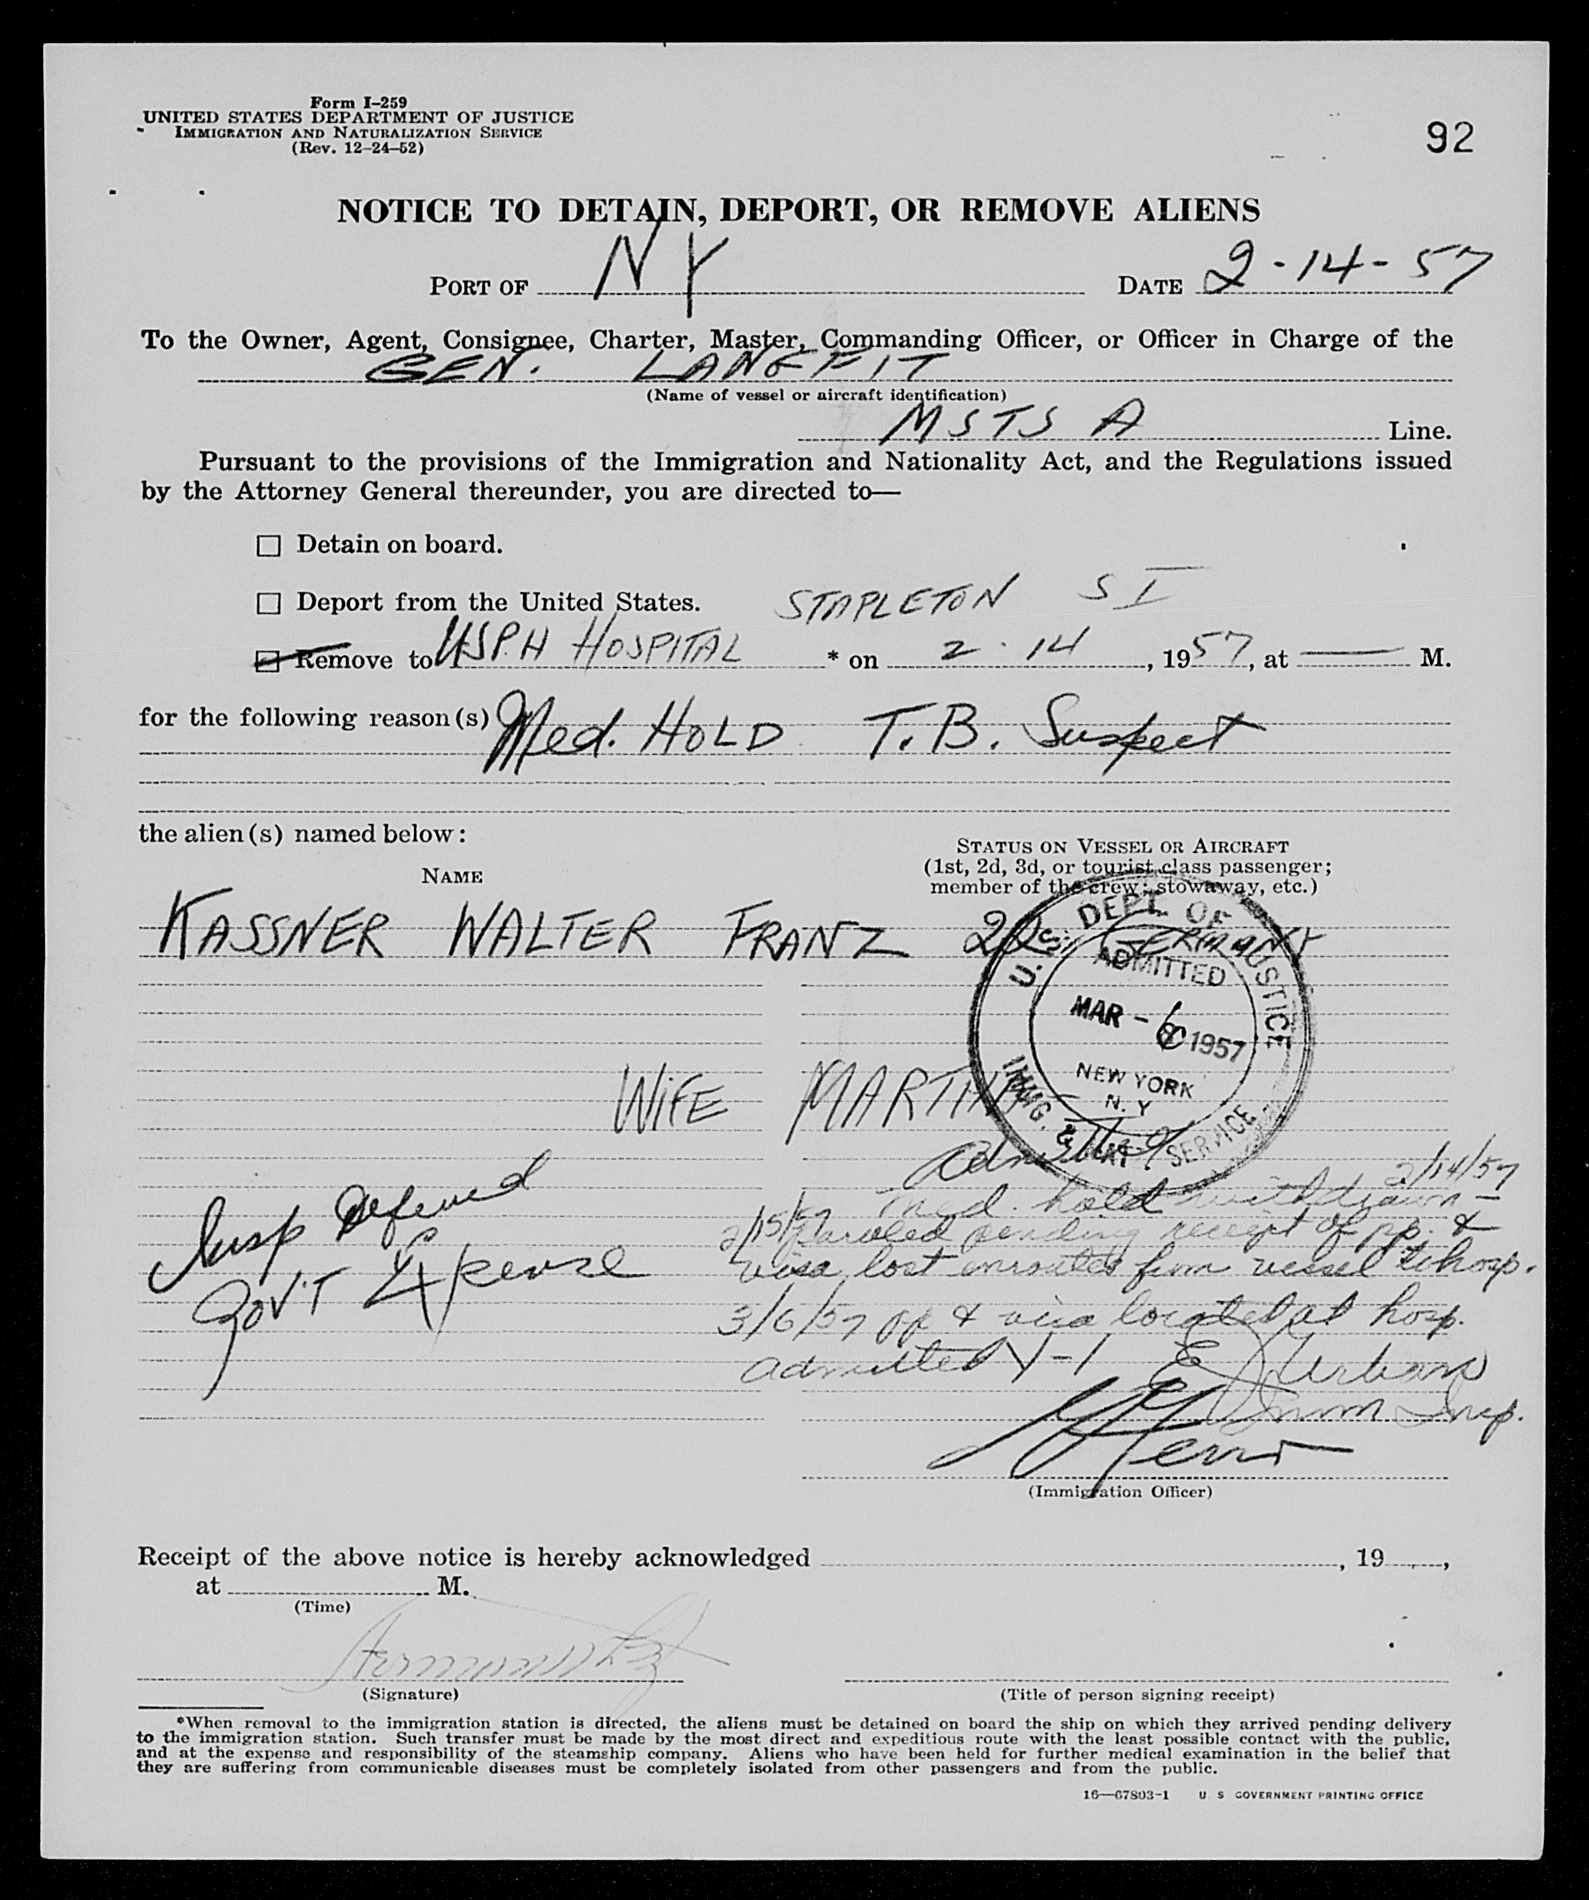 Form I-259
UNITED STATES DEPARTMENT OF JUSTICE
IMMIGRATION AND NATURALIZATION SERVICE
(Rev. 12-24-52)
92
NOTICE TO DETAIN, DEPORT, OR REMOVE ALIENS
PORT OF NY DATE 2-14-57
To the Owner, Agent, Consignee, Charter, Master, Commanding Officer, or Officer in Charge of the
GEN. LANGFIT
(Name of vessel or aircraft identification)
MSTS A Line.
Pursuant to the provisions of the Immigration and Nationality Act, and the Regulations issued
by the Attorney General thereunder, you are directed to—
☐ Detain on board.
☐ Deport from the United States. STAPLETON S I
☐ Remove to USPH HOSPITAL * on 2-14, 1957, at — M.
for the following reason(s) Med. HOLD T.B. Suspect
the alien(s) named below:
STATUS ON VESSEL OR AIRCRAFT
(1st, 2d, 3d, or tourist class passenger;
member of the crew; stowaway, etc.)
NAME
KASSNER WALTER FRANZ 20 GERMANY
U.S. DEPT. OF JUSTICE
ADMITTED
MAR - 6 1957
NEW YORK
N. Y
IMMIG. & NAT. SERVICE
WIFE MARTHA
Admitted
2/14/57
Insp Deferred
Gov't Expense
med. hold withdrawn -
2/15/57 Paroled pending receipt of pp. &
visa lost enroute from vessel to hosp.
3/6/57 pp & visa located at hosp.
admitted Y-1 E J Urban
Imm Insp.
(Immigration Officer)
Receipt of the above notice is hereby acknowledged , 19 ,
at M.
(Time)
(Signature) (Title of person signing receipt)
*When removal to the immigration station is directed, the aliens must be detained on board the ship on which they arrived pending delivery
to the immigration station. Such transfer must be made by the most direct and expeditious route with the least possible contact with the public,
and at the expense and responsibility of the steamship company. Aliens who have been held for further medical examination in the belief that
they are suffering from communicable diseases must be completely isolated from other passengers and from the public.
16—67803-1 U S GOVERNMENT PRINTING OFFICE